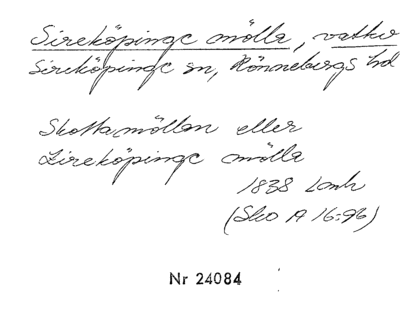 Sireköpinge mölla, vatkv
Sireköpinge sn, Rönnebergs hd
Skottamöllan eller
Zireköpinge mölla
1838 Lmk
(Sko A 16:96)
Nr 24084